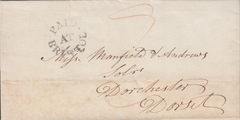 PAID
AT
BRISTOL
Messrs Manfield & Andrews
Solrs
Dorchester
Dorset